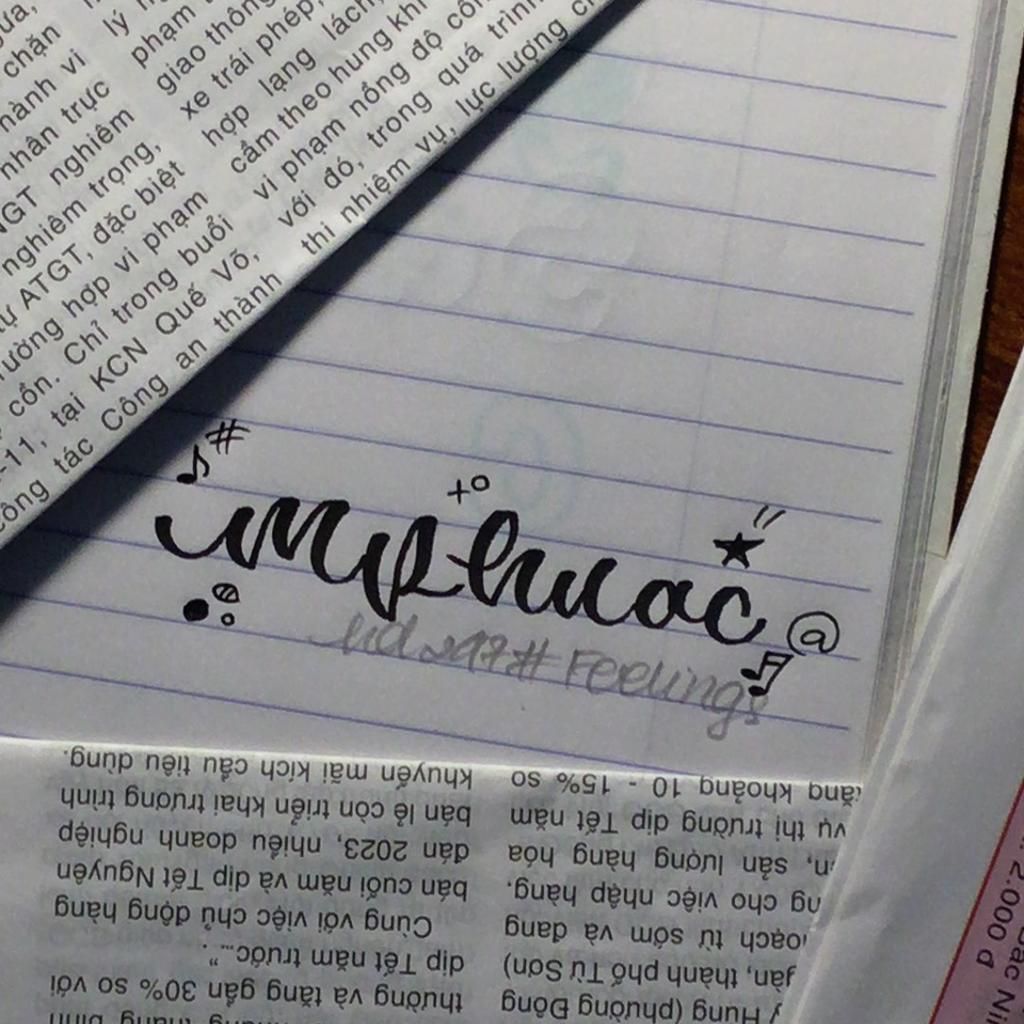 lý
phạm
chặn
giao thông
hành vi
xe trái phép,
nhân trực
hợp lạng lách,
GT nghiêm
cầm theo hung khí
nghiêm trọng,
vi phạm nồng độ cồn
tự ATGT, đặc biệt
với đó, trong quá trình
trường hợp vi phạm
thi nhiệm vụ, lực lượng
cồn. Chỉ trong buổi
-11, tại KCN Quế Võ,
công tác Công an thành
#
+o
myphuoc @
# Feelings
khuyến mãi kích cầu tiêu dùng.
bán lẻ còn triển khai trương trình
đán 2023, nhiều doanh nghiệp
bán cuối năm và dịp Tết Nguyên
Cùng với việc chủ động hàng
dịp Tết năm trước...”.
thường và tăng gần 30% so với
tăng khoảng 10 - 15% so
vụ thị trường dịp Tết năm
sản lượng hàng hóa
cho việc nhập hàng,
hoạch từ sớm và đang
thành phố Từ Sơn)
Hưng (phường Đông
2.000 đ
Bắc Ni